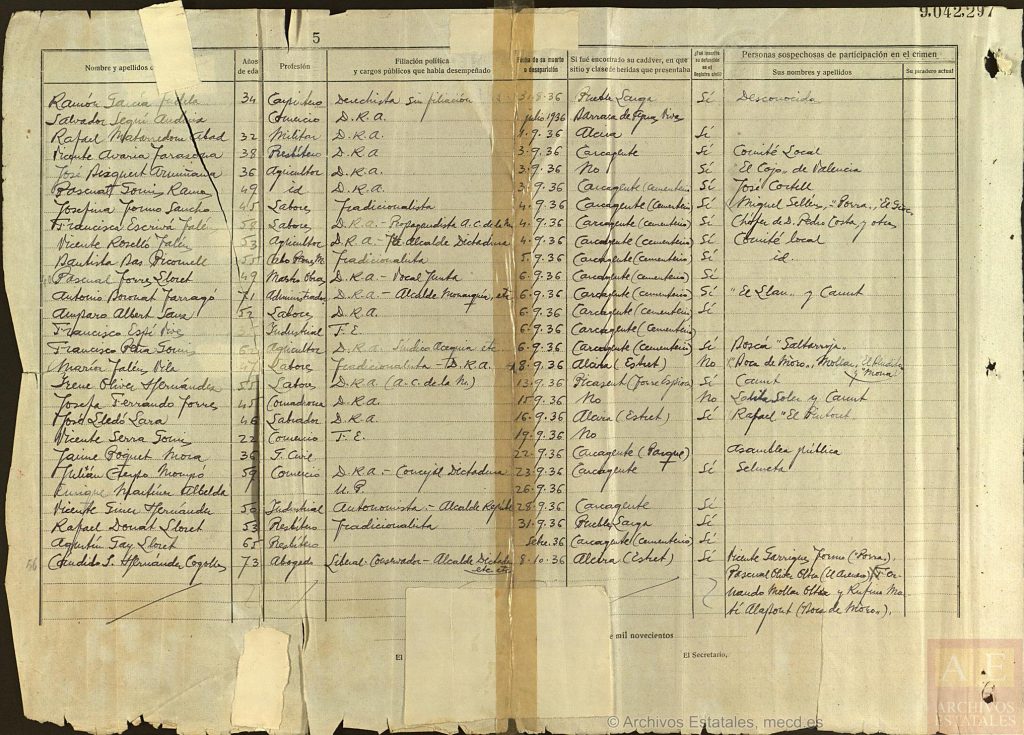 9.042.297
5
Nombre y apellidos d Años de edad Profesión Filiación política y cargos públicos que había desempeñado Fecha de su muerte o desaparición Si fué encontrado su cadáver, en que sitio y clase de heridas que presentaba ¿Fué inscrita su defunción en el Registro civil? Personas sospechosas de participación en el crimen
Sus nombres y apellidos Su paradero actual
Ramón García 34 Carpintero Derechista sin filiación 31-8-36 Puebla Larga Sí Desconocido
Salvador Seguí Comercio D.R.A. julio 1936 Barraca de Agua Vive
Rafael Matarredona Abad 32 Militar D.R.A. 1-9-36 Alcira Sí
Vicente Avaria 38 Presbítero D.R.A. 3-9-36 Carcagente Sí Comité Local
José Bisquert 36 Agricultor D.R.A. 3-9-36 No Sí "El Cojo" de Valencia
Pascual Gomis Rama 49 id D.R.A. 3-9-36 Carcagente (cementerio) Sí José Cortell
Josefina Sancho 45 Labores Tradicionalista 4-9-36 Carcagente (cementerio) Sí Miguel Selles, "Porra",
Francisca Escrivá Talén 58 Labores D.R.A. - Propagandista A.C. de la M. 4-9-36 Carcagente (cementerio) Sí Chófer de D. Pedro Costa y otro
Vicente Roselló Talén 53 Agricultor D.R.A. - Alcalde Dictadura 4-9-36 Carcagente (cementerio) Sí Comité local
Bautista Bas Picornell 55 Tradicionalista 5-9-36 Carcagente (cementerio) Sí id
Pascual Torres Lloret 49 Maestro Obras D.R.A. - Vocal Junta 6-9-36 Carcagente (cementerio) Sí
Antonio Boronat Tarragó 71 Administrador D.R.A. - Alcalde Monarquía, etc 6-9-36 Carcagente (cementerio) Sí "El Llan" y Canut
Amparo Albert 52 Labores D.R.A. 6-9-36 Carcagente (cementerio) Sí
Francisco Espí Industrial T.E. 6-9-36 Carcagente (cementerio)
Francisco Peña Gomis 62 Agricultor D.R.A. Síndico Acequia etc 6-9-36 Carcagente (cementerio) Sí Bosca "Saltarroja"
María Talén Vila 47 Labores Tradicionalista - D.R.A. 8-9-36 Alcira (Estret) No "Boca de Moro", Mollar,
y "Mona"
Irene Oliver Hernández 55 Labores D.R.A. (A.C. de la M.) 13-9-36 Picasent Sí Canut
Josefa Ferrando Torres 45 Comadrona D.R.A. 15-9-36 No No Soler y Canut
José Lledó Lara 46 Labrador D.R.A. 16-9-36 Alcira (Estret) Sí Rafael "El Pintout
Vicente Serra Gomis 22 Comercio T.E. 19-9-36 No
Jaime Poquet Mora 36 22-9-36 Carcagente (Parque) Asamblea pública
Julián Crespo Mompó 59 Comercio D.R.A - Concejal Dictadura 23-9-36 Carcagente Sí Selmeta
Enrique Martínez Albelda U.P. 26-9-36
Vicente Giner Hernández 50 Industrial Autonomista - Alcalde Repúbl 28-9-36 Carcagente Sí
Rafael Donat Lloret 53 Presbítero Tradicionalista 31-9-36 Puebla Larga Sí
Agustín Gay Lloret 65 Presbítero Setre.36 Carcagente (cementerio) Sí
Candido S. Hernández Cogollos 73 Abogado Liberal-Conservador - Alcalde Dictadura etc. etc. 8-10-36 Alcira (Estret) Sí Vicente Garrigues ("Porra").
Pascual Oliver Oltra
nando Mollar Oltra y Rufino Ma-
tí Alapont (Boca de Moro").
e mil novecientos
El
El Secretario,
A E
ARCHIVOS
ESTATALES
© Archivos Estatales, mecd.es